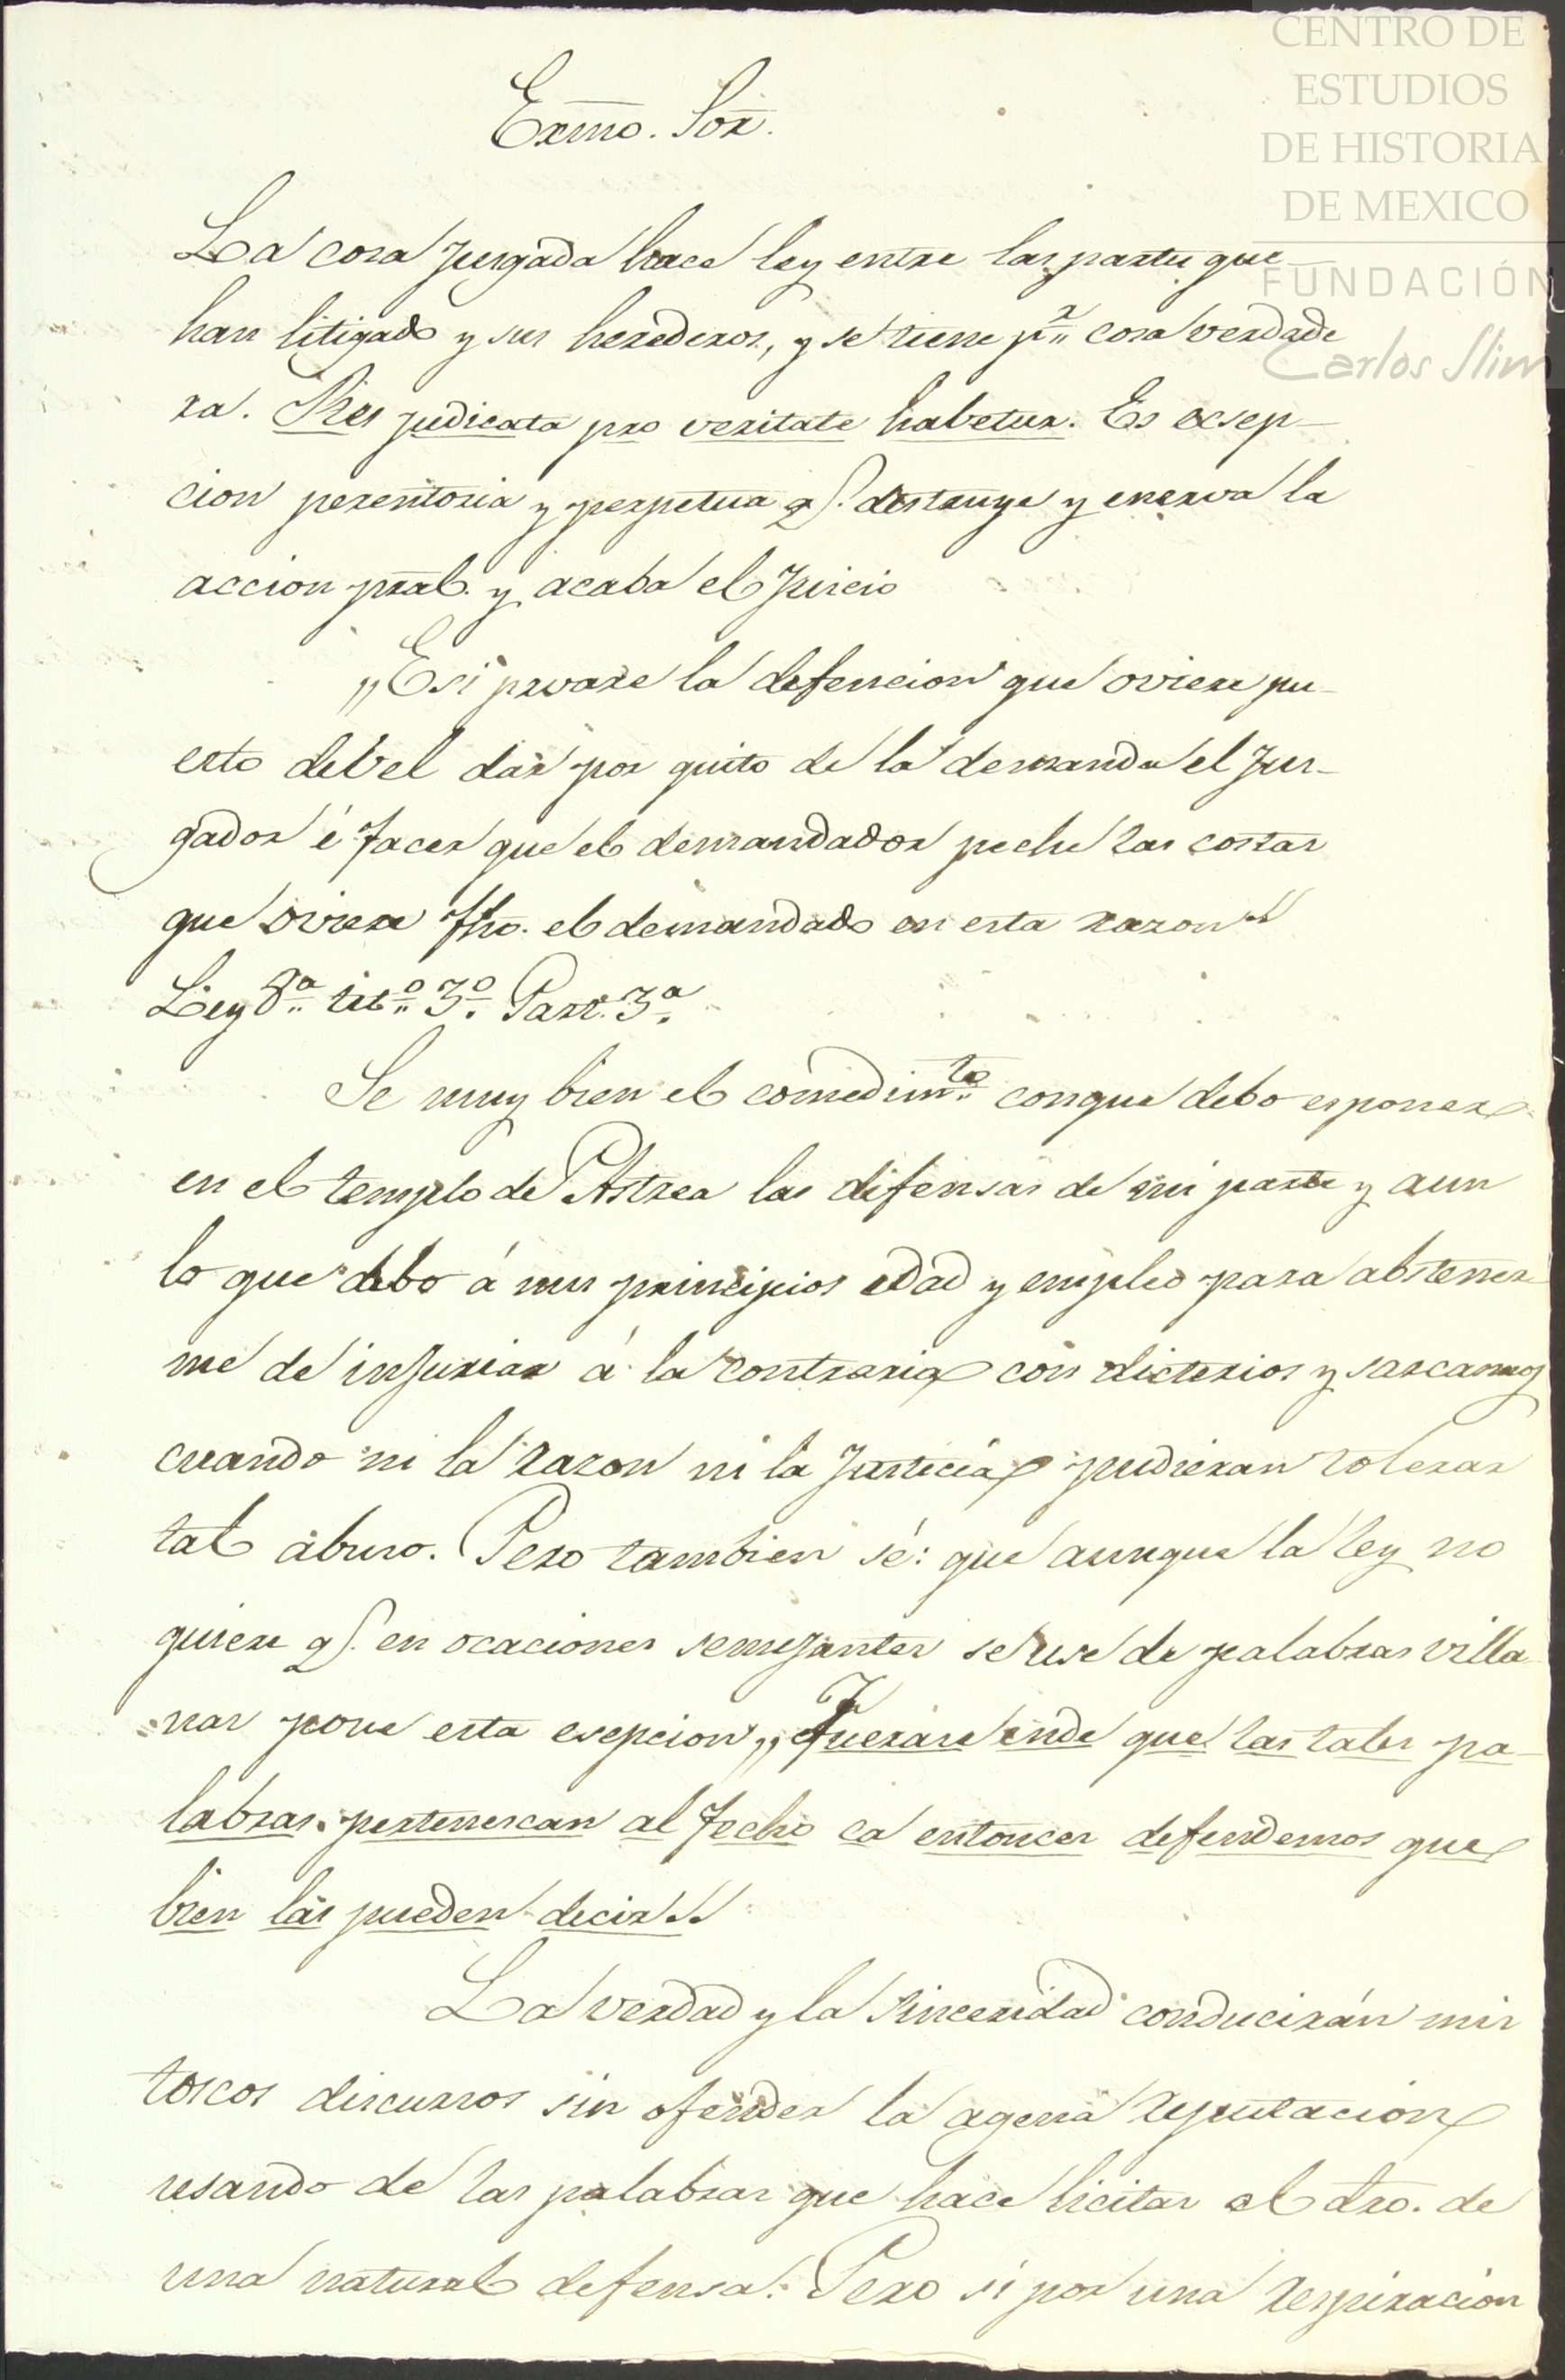 CENTRO DE
ESTUDIOS
DE HISTORIA
DE MEXICO
FUNDACIÓN
Carlos Slim
Exmo. Sor.
La cosa jusgada hace ley entre las partes que
han litigado y sus herederos, y se tiene pr. cosa verdade
ra. Res judicata pro veritate habetur. Es exsep-
cion perentoria y perpetua q. destruye y enerva la
accion pral. y acaba el juicio
"E si provare la defencion que oviere pu-
esto debel dar por quito de la demanda el Jus-
gador é facer que el demandador peche las costas
que oviere fho. el demandado en esta razon"
Ley 8a. tito. 3o. Part. 3a.
Se muy bien el comedimto. conque debo esponer
en el templo de Astrea las difensas de mi parte y aun
lo que debo á mis principios edad y empleo para abstener
me de injuriar á la contraria con dicterios y sarcasmos
cuando ni la razon ni la justicia pudieran tolerar
tal abuso. Pero tambien sé: que aunque la ley no
quiere q. en ocaciones semejantes se use de palabras villa
nas pone esta esepcion "Fueras ende que las tales pa-
labras pertenescan al fecho ca entonces defendemos que
bien las pueden decir"
La verdad y la sinceridad conducirán mis
toscos discursos sin ofender la agena reputacion
usando de las palabras que hace licitas el dro. de
una natural defensa. Pero si por una respiracion